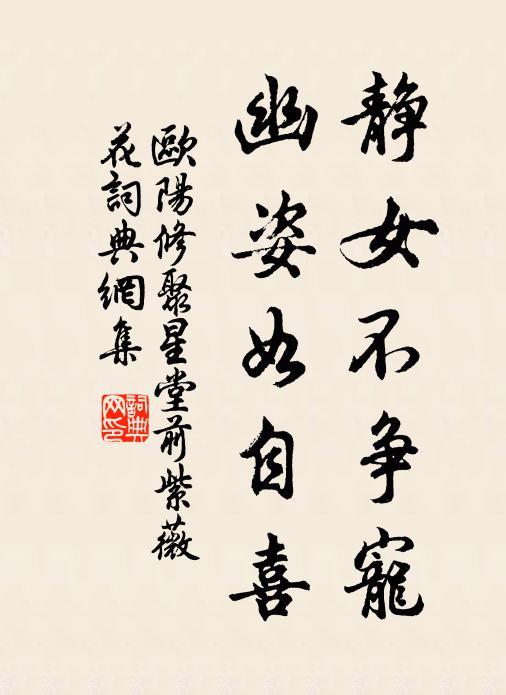 靜女不争寵
幽姿如自喜
歐陽修聚星堂前紫薇
花詞典網集
詞典网印